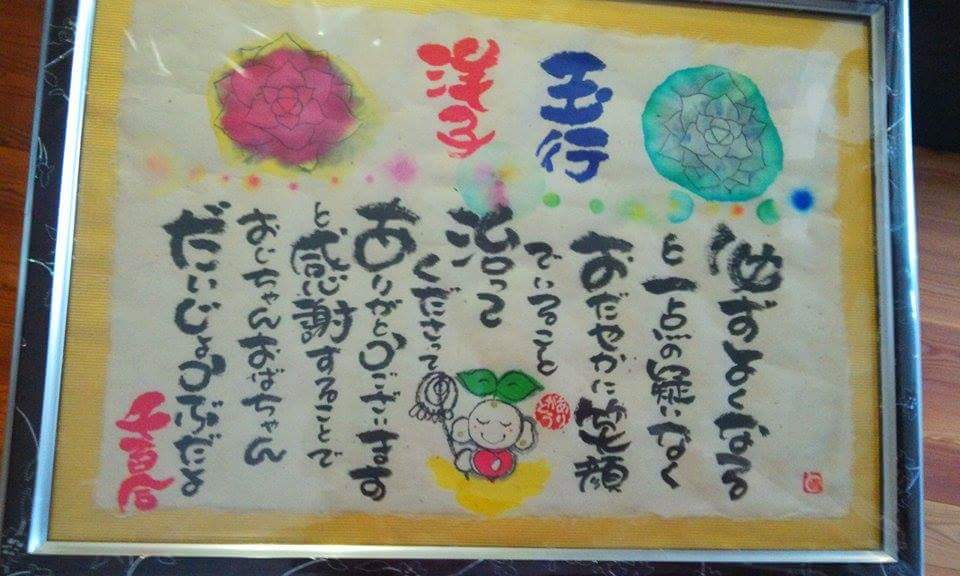 玉行
洋子
必ずよくなる
と一点の疑いなく
おだやかに笑顔
でいること
治って
くださって
ありがとうございます
と感謝することで
おじちゃんおばちゃん
だいじょうぶだよ
ありがとう